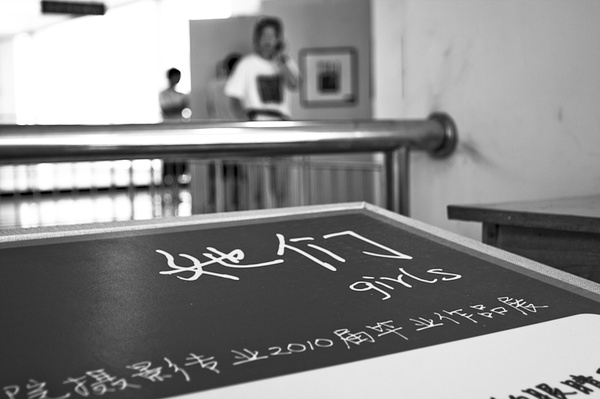 她们
girls
院摄影专业2010届毕业作品展
眼睛